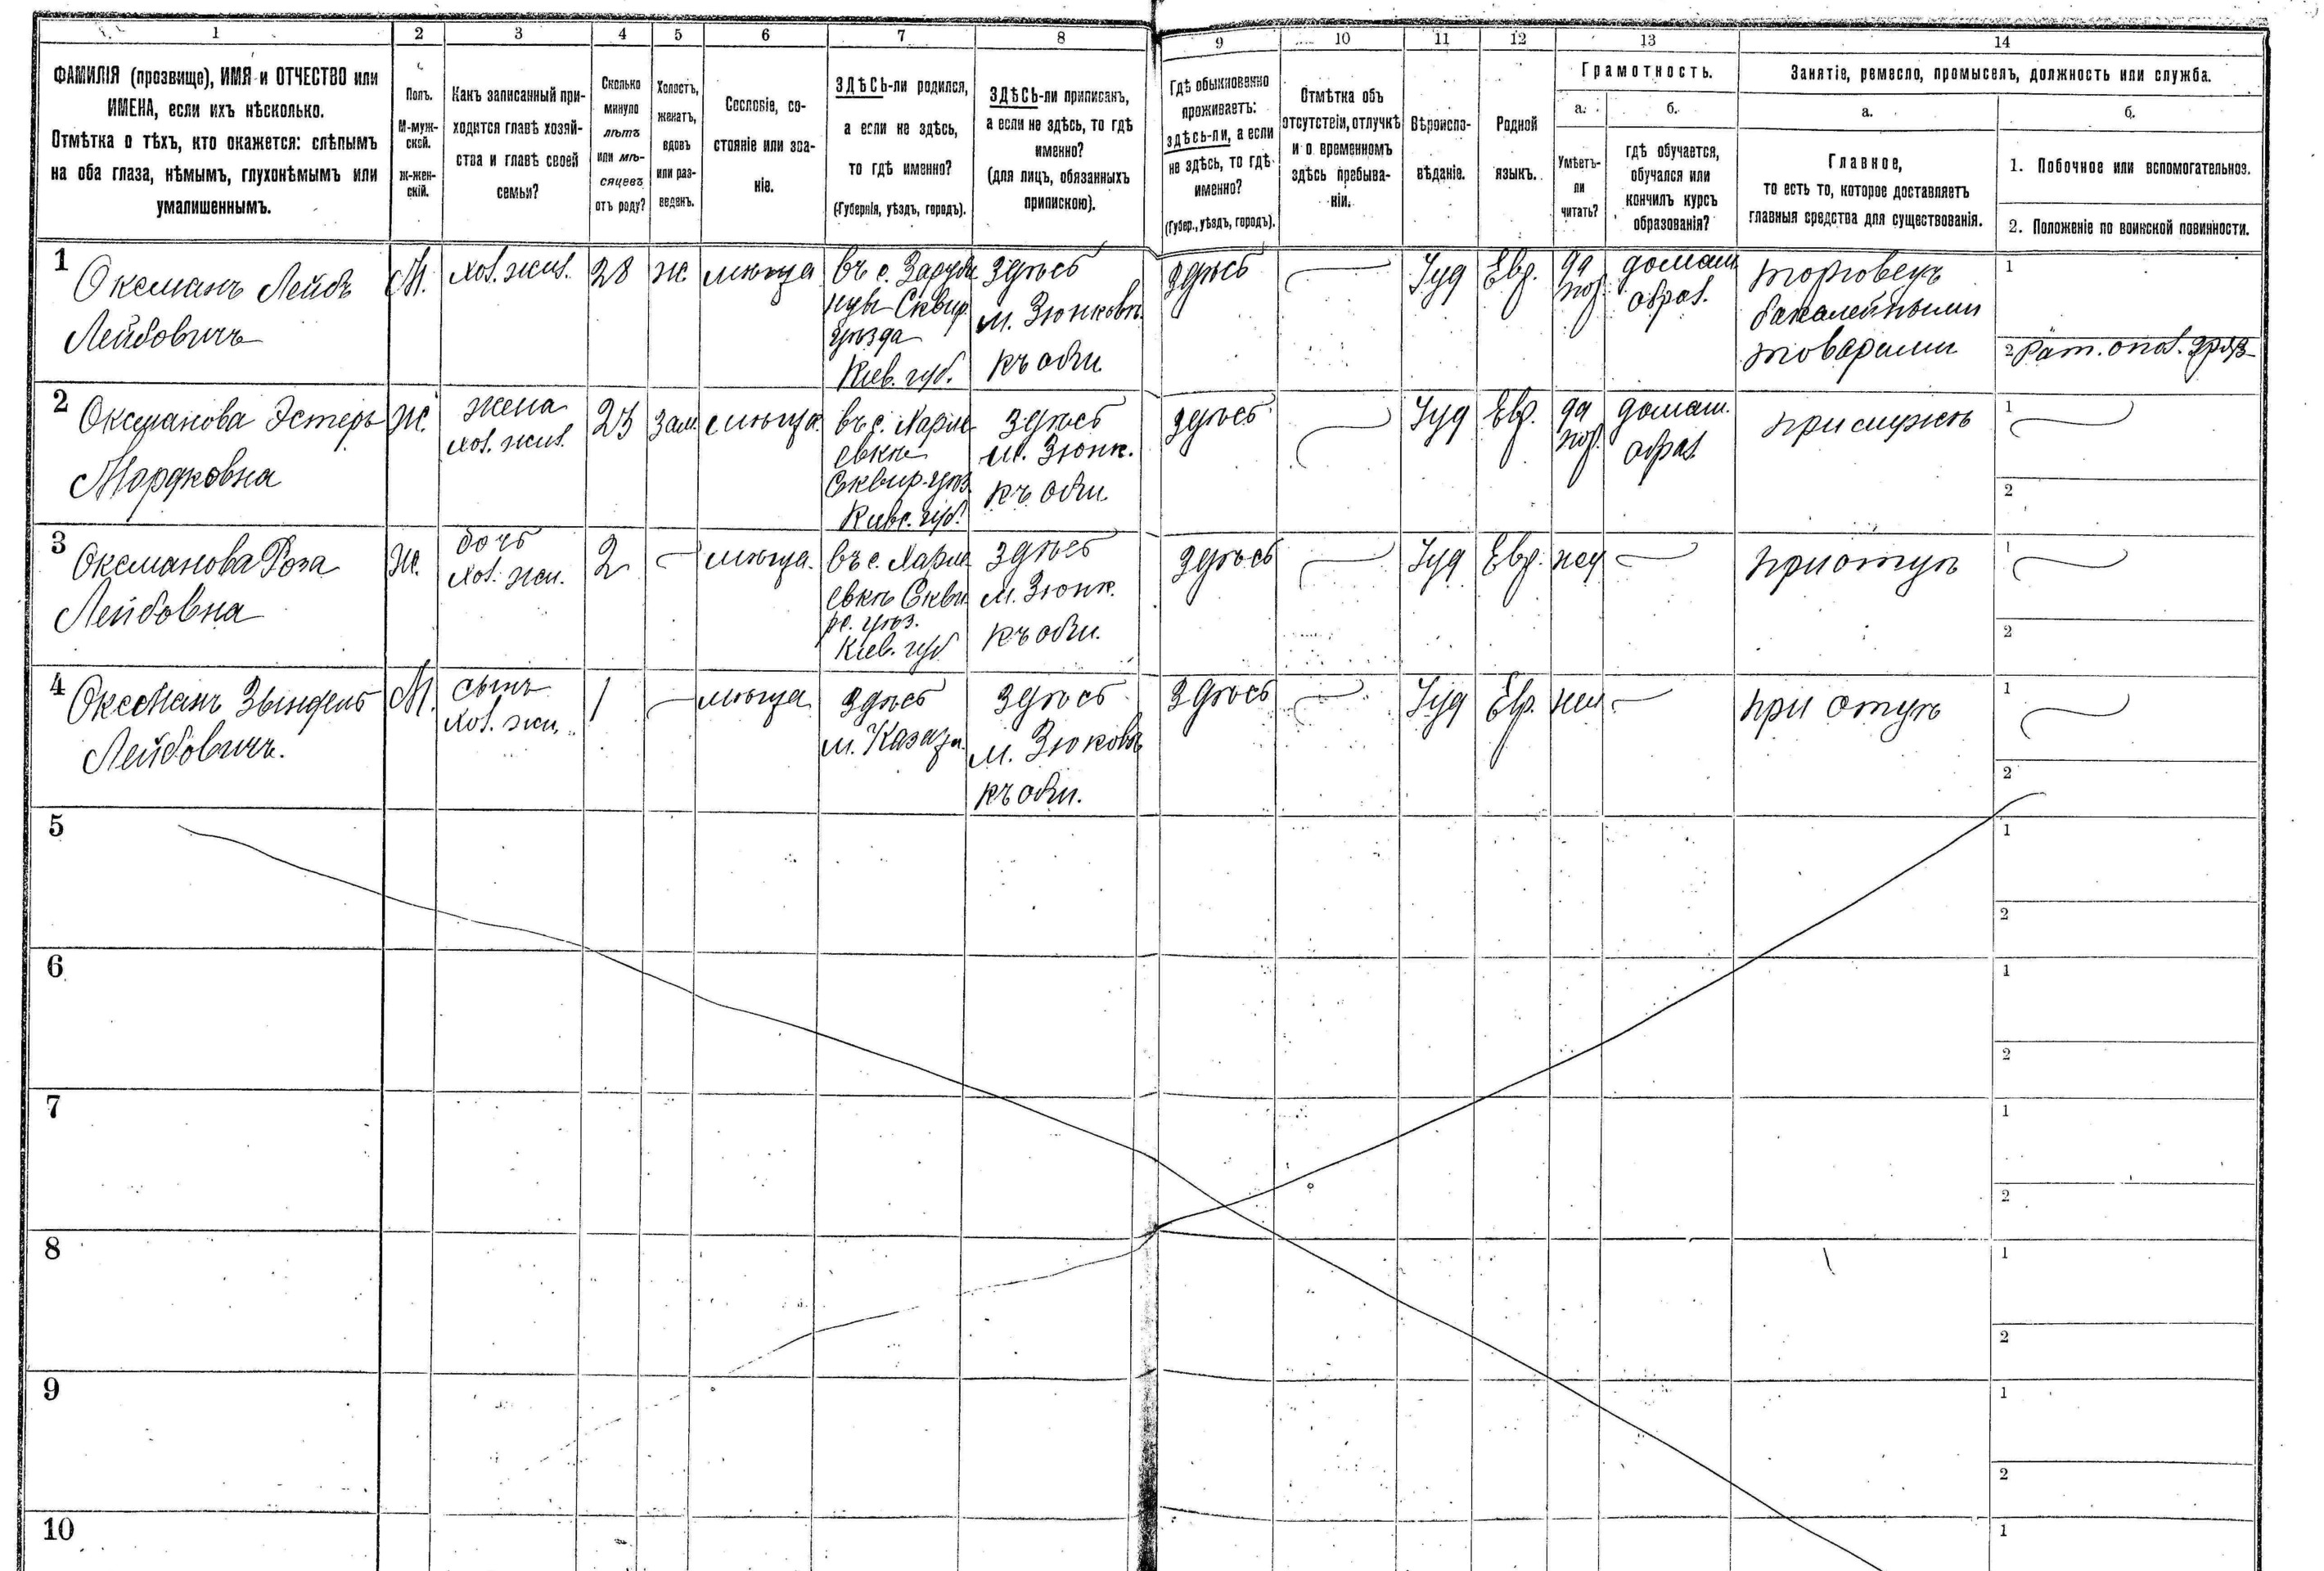 1 2 3 4 5 6 7 8 9 10 11 12 13 14
ФАМИЛІЯ (прозвище), ИМЯ и ОТЧЕСТВО или
ИМЕНА, если ихъ нѣсколько.
Отмѣтка о тѣхъ, кто окажется: слѣпымъ
на оба глаза, нѣмымъ, глухонѣмымъ или
умалишеннымъ.
Полъ.
М-муж-
ской.
Ж-жен-
скій.
Какъ записанный при-
ходится главѣ хозяй-
ства и главѣ своей
семьи?
Сколько
минуло
лѣтъ
или мѣ-
сяцевъ
отъ роду?
Холостъ,
женатъ,
вдовъ
или раз-
веденъ.
Сословіе, со-
стояніе или зва-
ніе.
ЗДѢСЬ-ли родился,
а если не здѣсь,
то гдѣ именно?
(Губернія, уѣздъ, городъ).
ЗДѢСЬ-ли приписанъ,
а если не здѣсь, то гдѣ
именно?
(для лицъ, обязанныхъ
припискою).
Гдѣ обыкновенно
проживаетъ:
здѣсь-ли, а если
не здѣсь, то гдѣ
именно?
(Губер., уѣздъ, городъ).
Отмѣтка объ
отсутствіи, отлучкѣ
и о временномъ
здѣсь пребыва-
ніи.
Вѣроиспо-
вѣданіе.
Родной
языкъ.
Грамотность.
а.
Умѣетъ-
ли
читать?
б.
гдѣ обучается,
обучался или
кончилъ курсъ
образованія?
Занятіе, ремесло, промыселъ, должность или служба.
а.
Главное,
то есть то, которое доставляетъ
главныя средства для существованія.
б.
1. Побочное или вспомогательное.
2. Положеніе по воинской повинности.
1
Оксманъ Лейбъ
Лейбовичъ
М.
хоз. жил.
28
ж.
мѣща
въ с.
Сквир.
уѣзда
Кіев. губ.
здѣсь
м. Зюнковъ
къ общ.
здѣсь
Іуд
Евр.
да
домаш.
образ.
торговецъ
бакалейными
товарами
1
2 Рат. опол.
2
Оксманова Эстеръ
Мордковна
Ж.
жена
хоз. жил.
23
зам.
мѣща.
въ с.
Сквир. уѣз.
Кіев. губ.
здѣсь
м. Зюнк.
къ общ.
здѣсь
Іуд
Евр.
да
домаш.
образ.
при мужѣ
1
2
3
Оксманова Роза
Лейбовна
Ж.
дочь
хоз. жи.
2
мѣща.
въ с.
уѣз.
Кіев. губ
здѣсь
м. Зюнк.
къ общ.
здѣсь
Іуд
Евр.
нѣ
при отцѣ
1
2
4
Оксманъ
Лейбовичъ.
М.
сынъ
хоз. жи.
1
мѣща
здѣсь
м.
здѣсь
м. Зюковъ
къ общ.
здѣсь
Іуд
Евр.
нѣ
при отцѣ
1
2
5
1
2
6
1
2
7
1
2
8
1
2
9
1
2
10
1